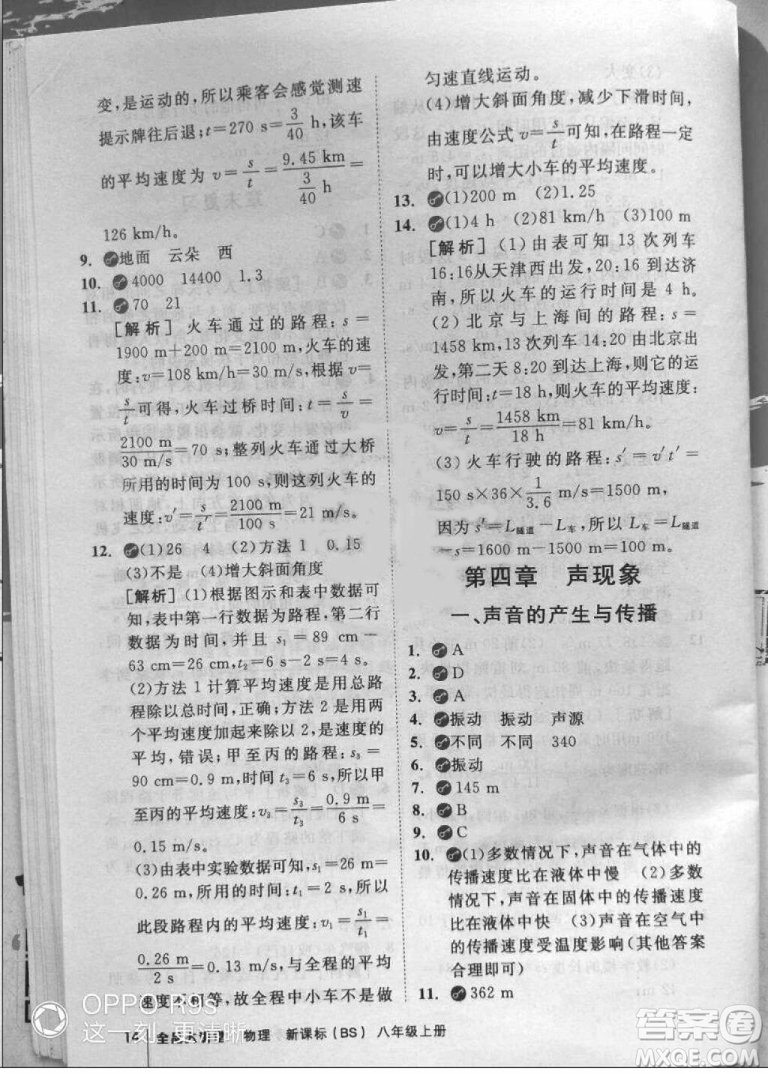 变,是运动的,所以乘客会感觉测速
提示牌往后退;t=270 s=3/40 h,该车
的平均速度为v=s/t=9.45 km/(3/40 h)=
126 km/h。
9. 地面 云朵 西
10. 4000 14400 1.3
11. 70 21
[解析]火车通过的路程:s=
1900 m+200 m=2100 m,火车的速
度:v=108 km/h=30 m/s,根据v=
s/t可得,火车过桥时间:t=s/v=
2100 m/30 m/s=70 s;整列火车通过大桥
所用的时间为100 s,则这列火车的
速度:v′=s/t′=2100 m/100 s=21 m/s。
12. (1)26 4 (2)方法1 0.15
(3)不是 (4)增大斜面角度
[解析](1)根据图示和表中数据可
知,表中第一行数据为路程,第二行
数据为时间,并且s1=89 cm-
63 cm=26 cm,t2=6 s-2 s=4 s。
(2)方法1计算平均速度是用总路
程除以总时间,正确;方法2是用两
个平均速度加起来除以2,是速度的
平均,错误;甲至丙的路程:s3=
90 cm=0.9 m,时间t3=6 s,所以甲
至丙的平均速度:v3=s3/t3=0.9 m/6 s=
0.15 m/s。
(3)由表中实验数据可知,s1=26 cm=
0.26 m,所用的时间:t1=2 s,
此段路程内的平均速度:v1=s1/t1=
0.26 m/2 s=0.13 m/s,与全程的平均
速度不相等,故全程中小车不是做
OPPO R9s
这一刻 更清晰
物理 新课标(BS) 八年级上册
匀速直线运动。
(4)增大斜面角度,减少下滑时间,
由速度公式v=s/t可知,在路程一定
时,可以增大小车的平均速度。
13. (1)200 m (2)1.25
14. (1)4 h (2)81 km/h (3)100 m
[解析](1)由表可知13次列车
16:16从天津西出发,20:16到达济
南,所以火车的运行时间是4 h。
(2)北京与上海间的路程:s=
1458 km,13次列车14:20由北京出
发,第二天8:20到达上海,则它的运
行时间:t=18 h,则火车的平均速度:
v=s/t=1458 km/18 h=81 km/h。
(3)火车行驶的路程:s′=v′t′=
150 s×36×1/3.6 m/s=1500 m,
因为s′=L隧道-L车,所以L车=L隧道
-s=1600 m-1500 m=100 m。
第四章 声现象
一、声音的产生与传播
1. A
2. D
3. A
4. 振动 振动 声源
5. 不同 不同 340
6. 振动
7. 145 m
8. B
9. C
10. (1)多数情况下,声音在气体中的
传播速度比在液体中慢 (2)多数
情况下,声音在固体中的传播速度
比在液体中快 (3)声音在空气中
的传播速度受温度影响(其他答案
合理即可)
11. 362 m
作业答案